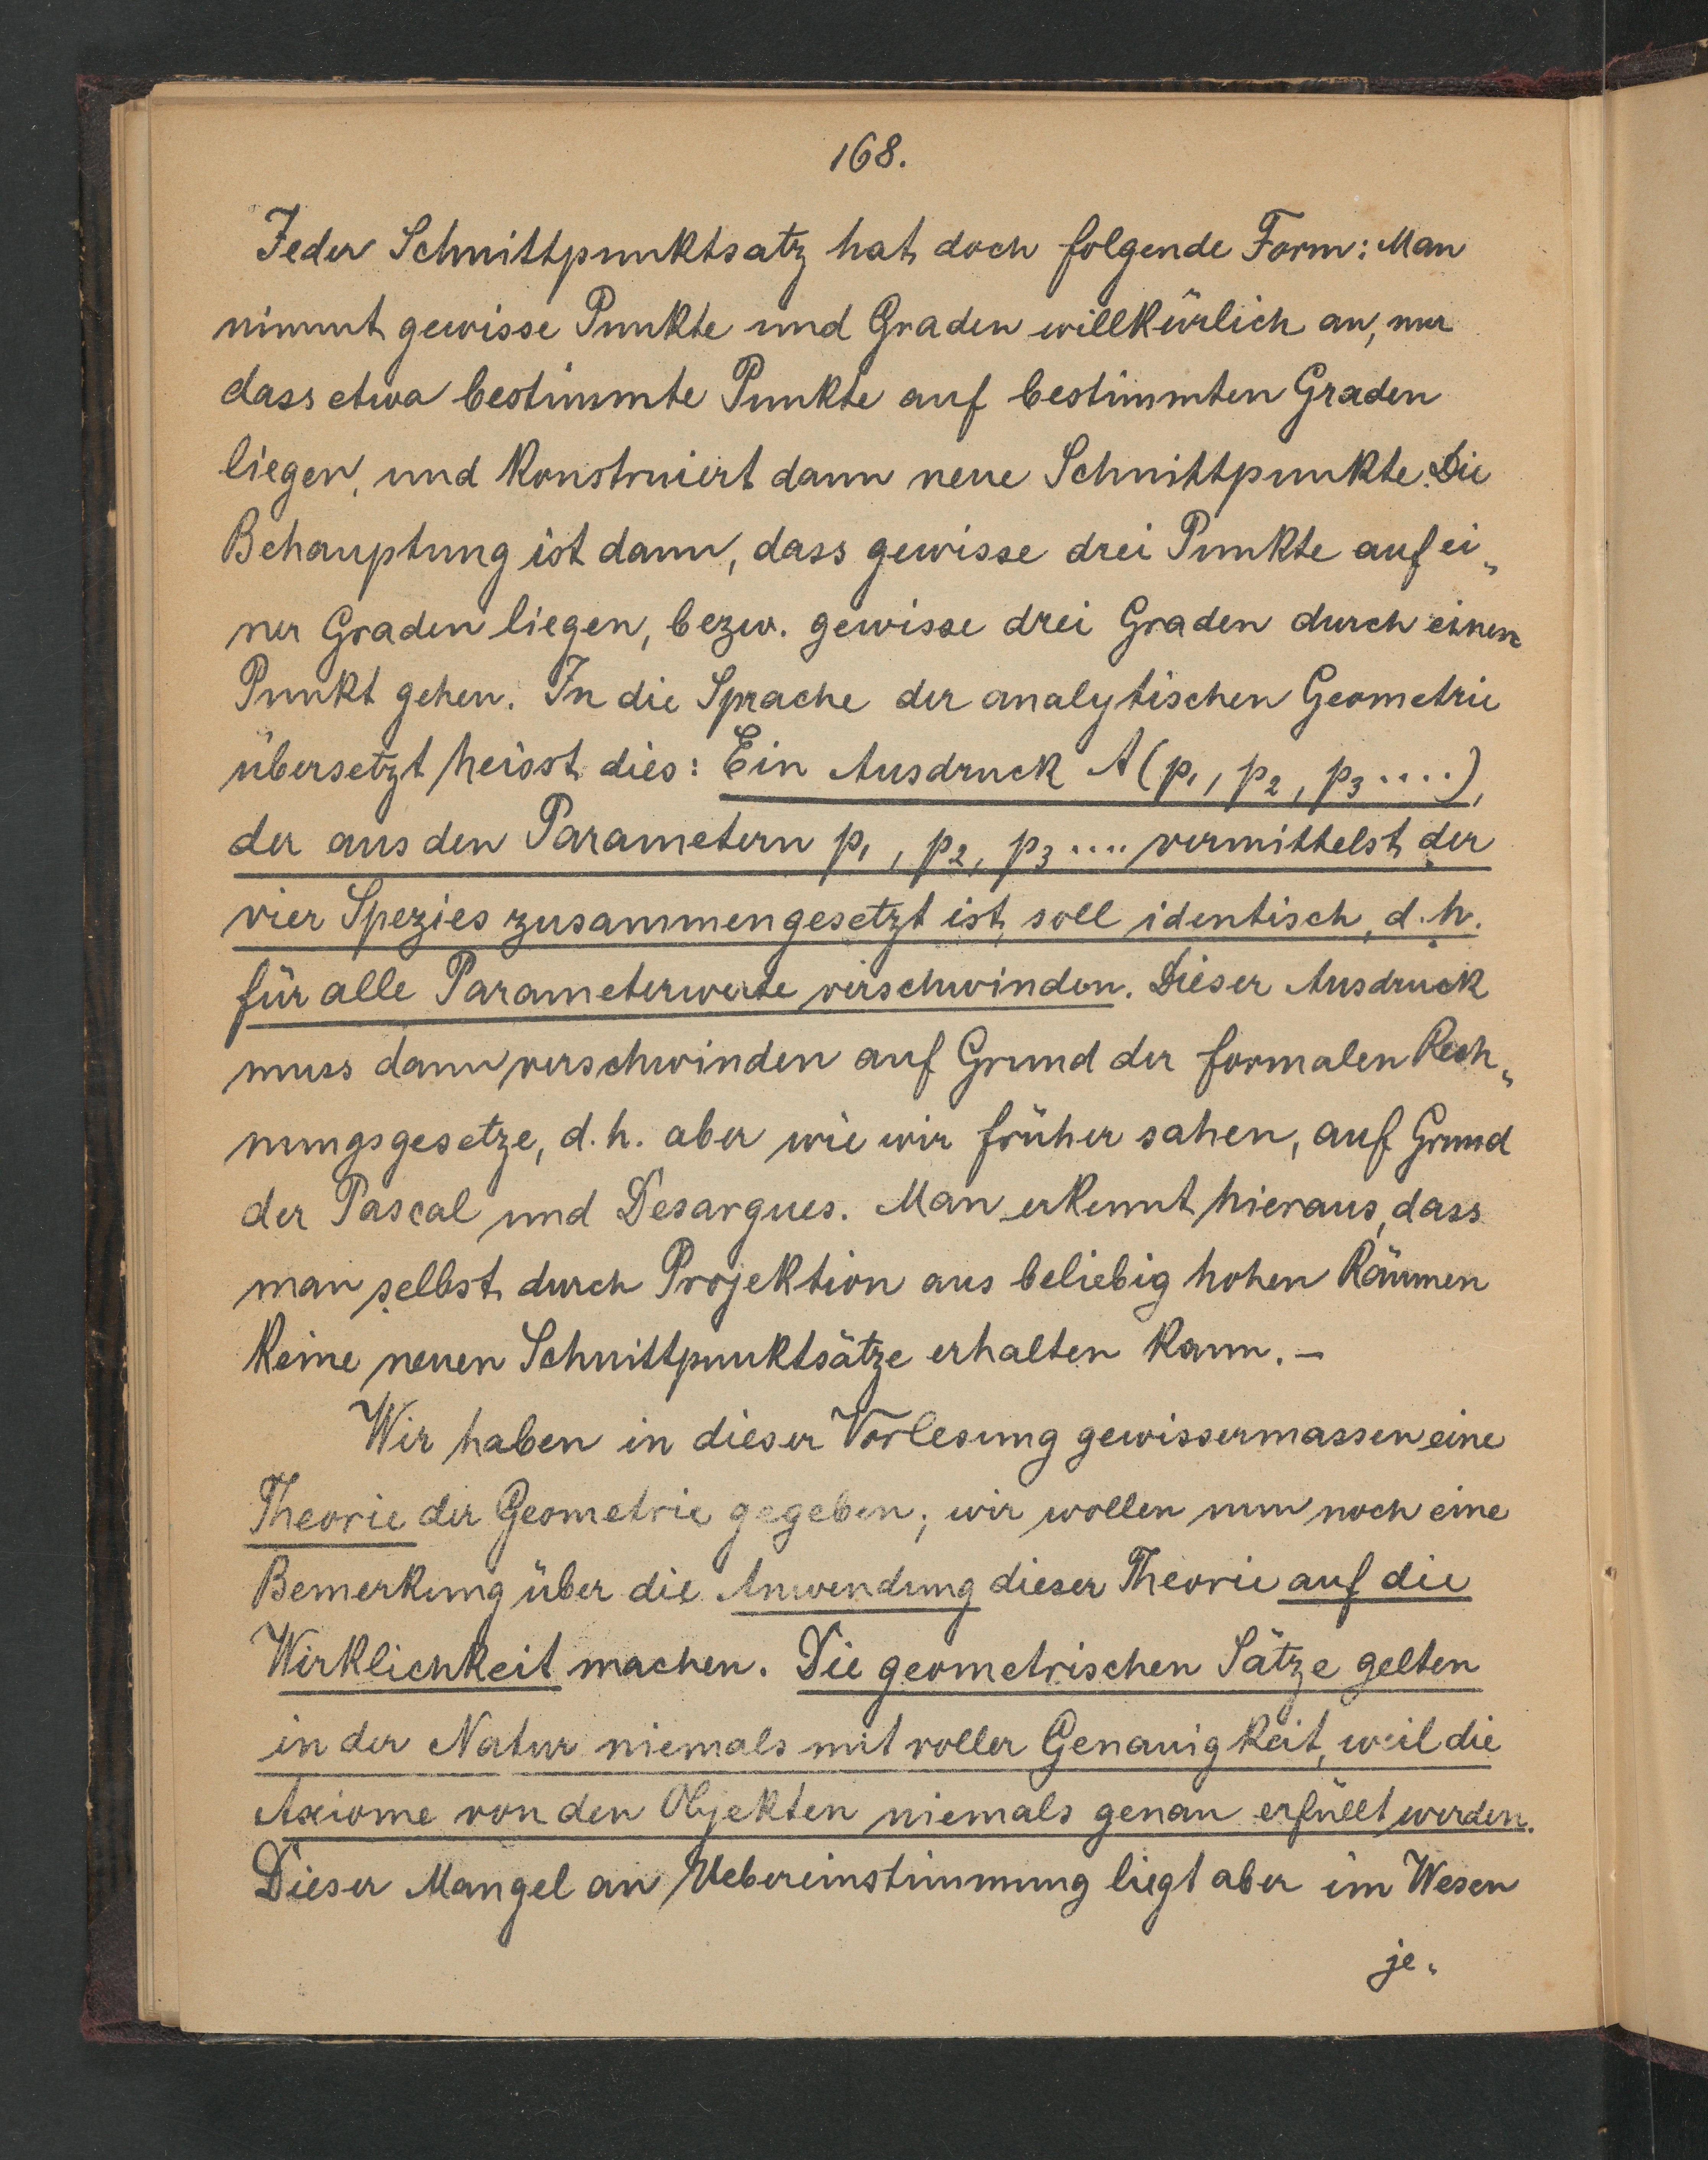 168.
Jeder Schnittpunktsatz hat doch folgende Form: Man
nimmt gewisse Punkte und Graden willkürlich an, nur
dass etwa bestimmte Punkte auf bestimmten Graden
liegen, und konstruiert dann neue Schnittpunkte. Die
Behauptung ist dann, dass gewisse drei Punkte auf ei„
ner Graden liegen, bezw. gewisse drei Graden durch einen
Punkt gehen. In die Sprache der analytischen Geometrie
übersetzt heisst dies: Ein Ausdruck A(p₁, p₂, p₃ ....),
der aus den Parametern p₁, p₂, p₃ .... vermittelst der
vier Spezies zusammengesetzt ist, soll identisch, d.h.
für alle Parameterwerte verschwinden. Dieser Ausdruck
muss dann verschwinden auf Grund der formalen Rech„
nungsgesetze, d.h. aber wie wir früher sahen, auf Grund
der Pascal und Desargues. Man erkennt hieraus, dass
man selbst durch Projektion aus beliebig hohen Räumen
keine neuen Schnittpunktsätze erhalten kann. –
Wir haben in dieser Vorlesung gewissermassen eine
Theorie der Geometrie gegeben; wir wollen nun noch eine
Bemerkung über die Anwendung dieser Theorie auf die
Wirklichkeit machen. Die geometrischen Sätze gelten
in der Natur niemals mit voller Genauigkeit, weil die
Axiome von den Objekten niemals genau erfüllt werden.
Dieser Mangel an Uebereinstimmung liegt aber im Wesen
je„